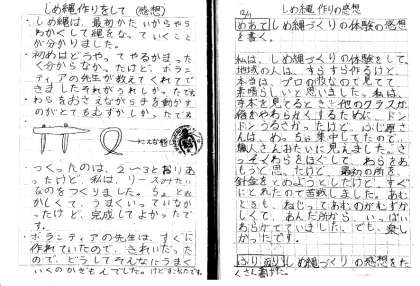 しめ縄作りをして (感想)
・しめ縄は、最初かたいからやら
わかくして縄をなっていくこと
が分かりました。
・初めはどうやってやるかまった
く分からなかったけど、ボラン
ティアの先生が教えてくれてで
きましたそれがうれしかったです
・わらをおさえながら手を動かす
のがとてもむずかしかったです
・つくったのは、2~3とおりあ
ったけど、私は、リースみたい
なのをつくりました。
かしくて、うまくいっていなか
ったけど、完成してよかったで
す。
・ボランティアの先生は、すぐに
作れていたので、きれいだった
ので、どうしてそんなにうまく
12/11
しめ縄作りの感想
めあて しめ縄づくりの体験の感想
を書く。
私は、しめ縄づくりの体験をして、
地域の人は、すらすら作るけど、
本当は、プロの技なので見てて
素晴らしいと思いました。私は、
手本を見てるときと他のクラスが
稲をやわらかくするために、ドン
ドンうるさかったけど、
職人さんみたいに見えました。さ
っそくわらをほぐして、わらをあ
もうと思ったけど、最初の所を
針金をとめようとしたけど、すぐ
にとれたので苦戦しました。あむ
ときも、ねじってあむのがむずか
しくて、あんだ所から、いっぱい
わらがでていました。でも、楽し
かったです。
ふり返り しめ縄づくりの感想をた
くさん書けた。